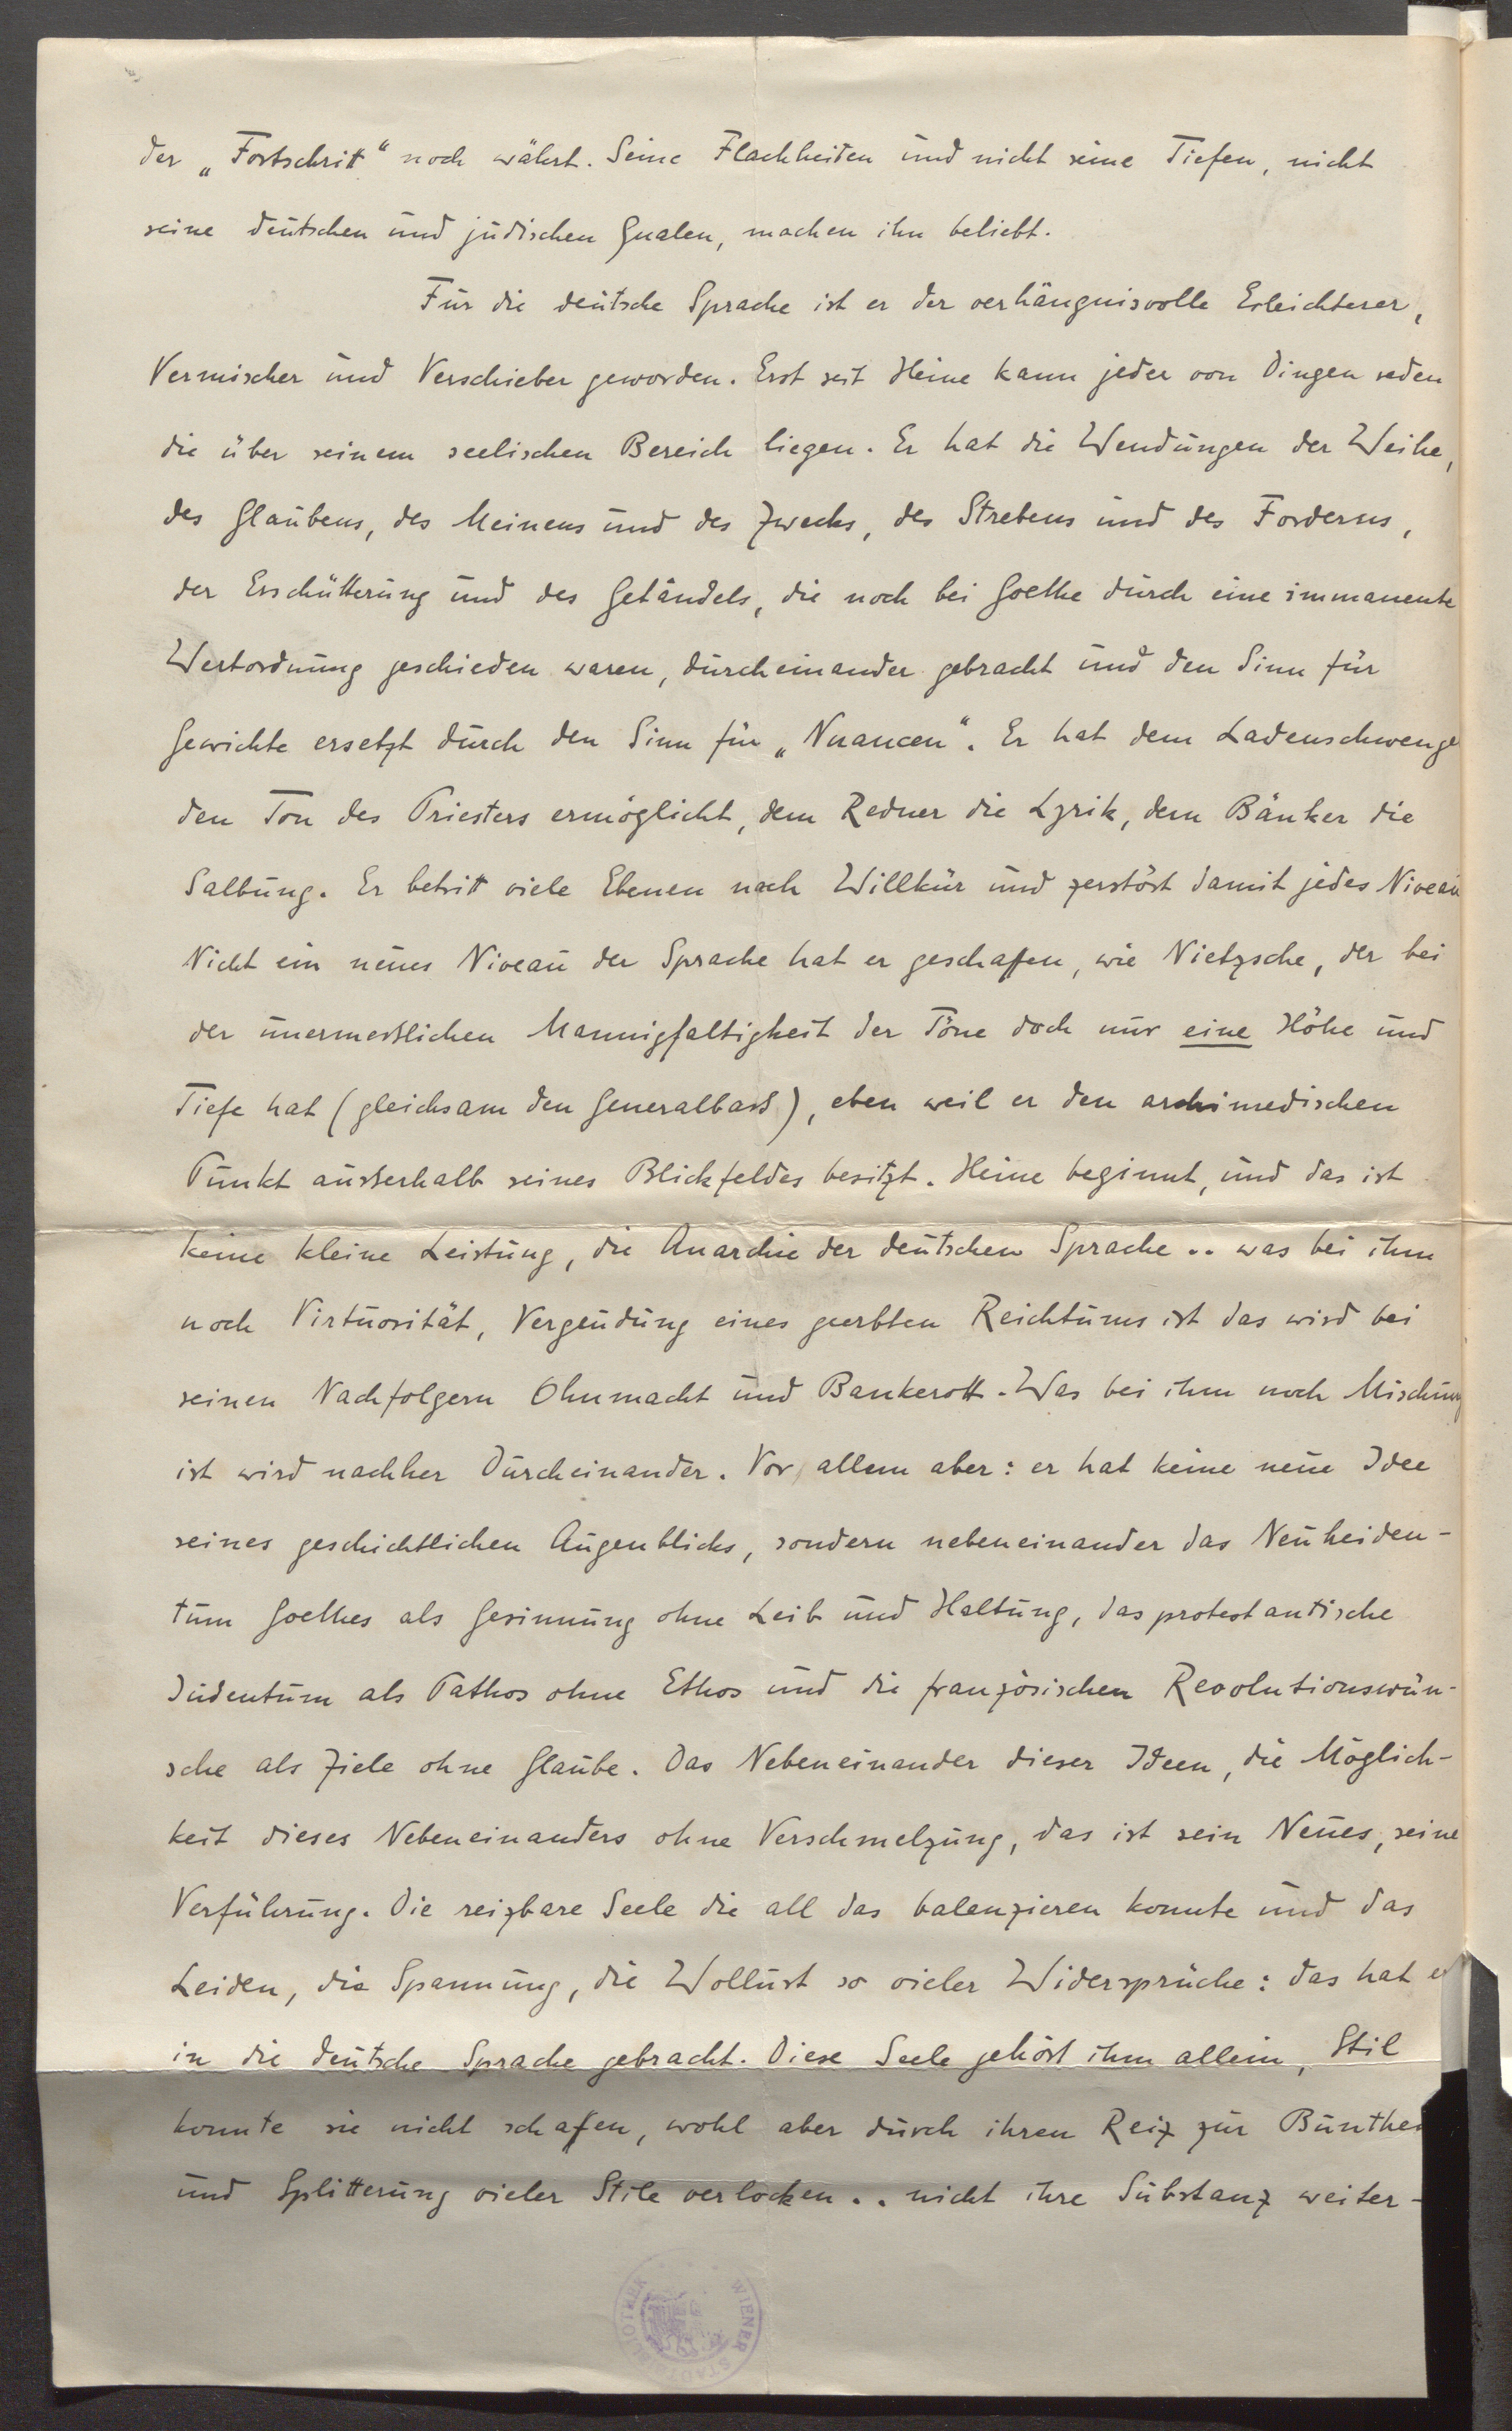 der „Fortschritt“ noch währt. Seine Flachheiten und nicht seine Tiefen, nicht
seine deutschen und jüdischen Qualen, machen ihn beliebt.
Für die deutsche Sprache ist er der verhängnisvolle Erleichterer,
Vermischer und Verschieber geworden. Erst seit Heine kann jeder von Dingen reden
die über seinem seelischen Bereich liegen. Er hat die Wendungen der Weihe,
des Glaubens, des Meinens und des Zwecks, des Strebens und des Forderns,
der Erschütterung und des Getändels, die noch bei Goethe durch eine immanente
Wertordnung geschieden waren, durcheinander gebracht und den Sinn für
Gewichte ersetzt durch den Sinn für „Nuancen“. Er hat dem Ladenschwengel
den Ton des Priesters ermöglicht, dem Redner die Lyrik, dem Bänker die
Salbung. Er betritt viele Ebenen nach Willkür und zerstört damit jedes Niveau
Nicht ein neues Niveau der Sprache hat er geschaffen, wie Nietzsche, der bei
der unermesslichen Mannigfaltigkeit der Töne doch nur eine Höhe und
Tiefe hat (gleichsam den Generalbass), eben weil er den archimedischen
Punkt ausserhalb seines Blickfeldes besitzt. Heine beginnt, und das ist
keine kleine Leistung, die Anarchie der deutschen Sprache .. was bei ihm
noch Virtuosität, Vergeudung eines geerbten Reichtums ist das wird bei
seinen Nachfolgern Ohnmacht und Bankerott. Was bei ihm noch Mischung
ist wird nachher Durcheinander. Vor allem aber: er hat keine neue Idee
seines geschichtlichen Augenblicks, sondern nebeneinander das Neuheiden-
tum Goethes als Gesinnung ohne Leib und Haltung, das protestantische
Judentum als Pathos ohne Ethos und die französischen Revolutionswün-
sche als Ziele ohne Glaube. Das Nebeneinander dieser Ideen, die Möglich-
keit dieses Nebeneinanders ohne Verschmelzung, das ist sein Neues, seine
Verführung. Die reizbare Seele die all das balenzieren konnte und das
Leiden, die Spannung, die Wollust so vieler Widersprüche: das hat er
in die deutsche Sprache gebracht. Diese Seele gehört ihm allein, Stil
konnte sie nicht schaffen, wohl aber durch ihren Reiz zur Bunthei
und Splitterung vieler Stile verlocken .. nicht ihre Substanz weiter-
WIENER STADTBIBLIOTHEK